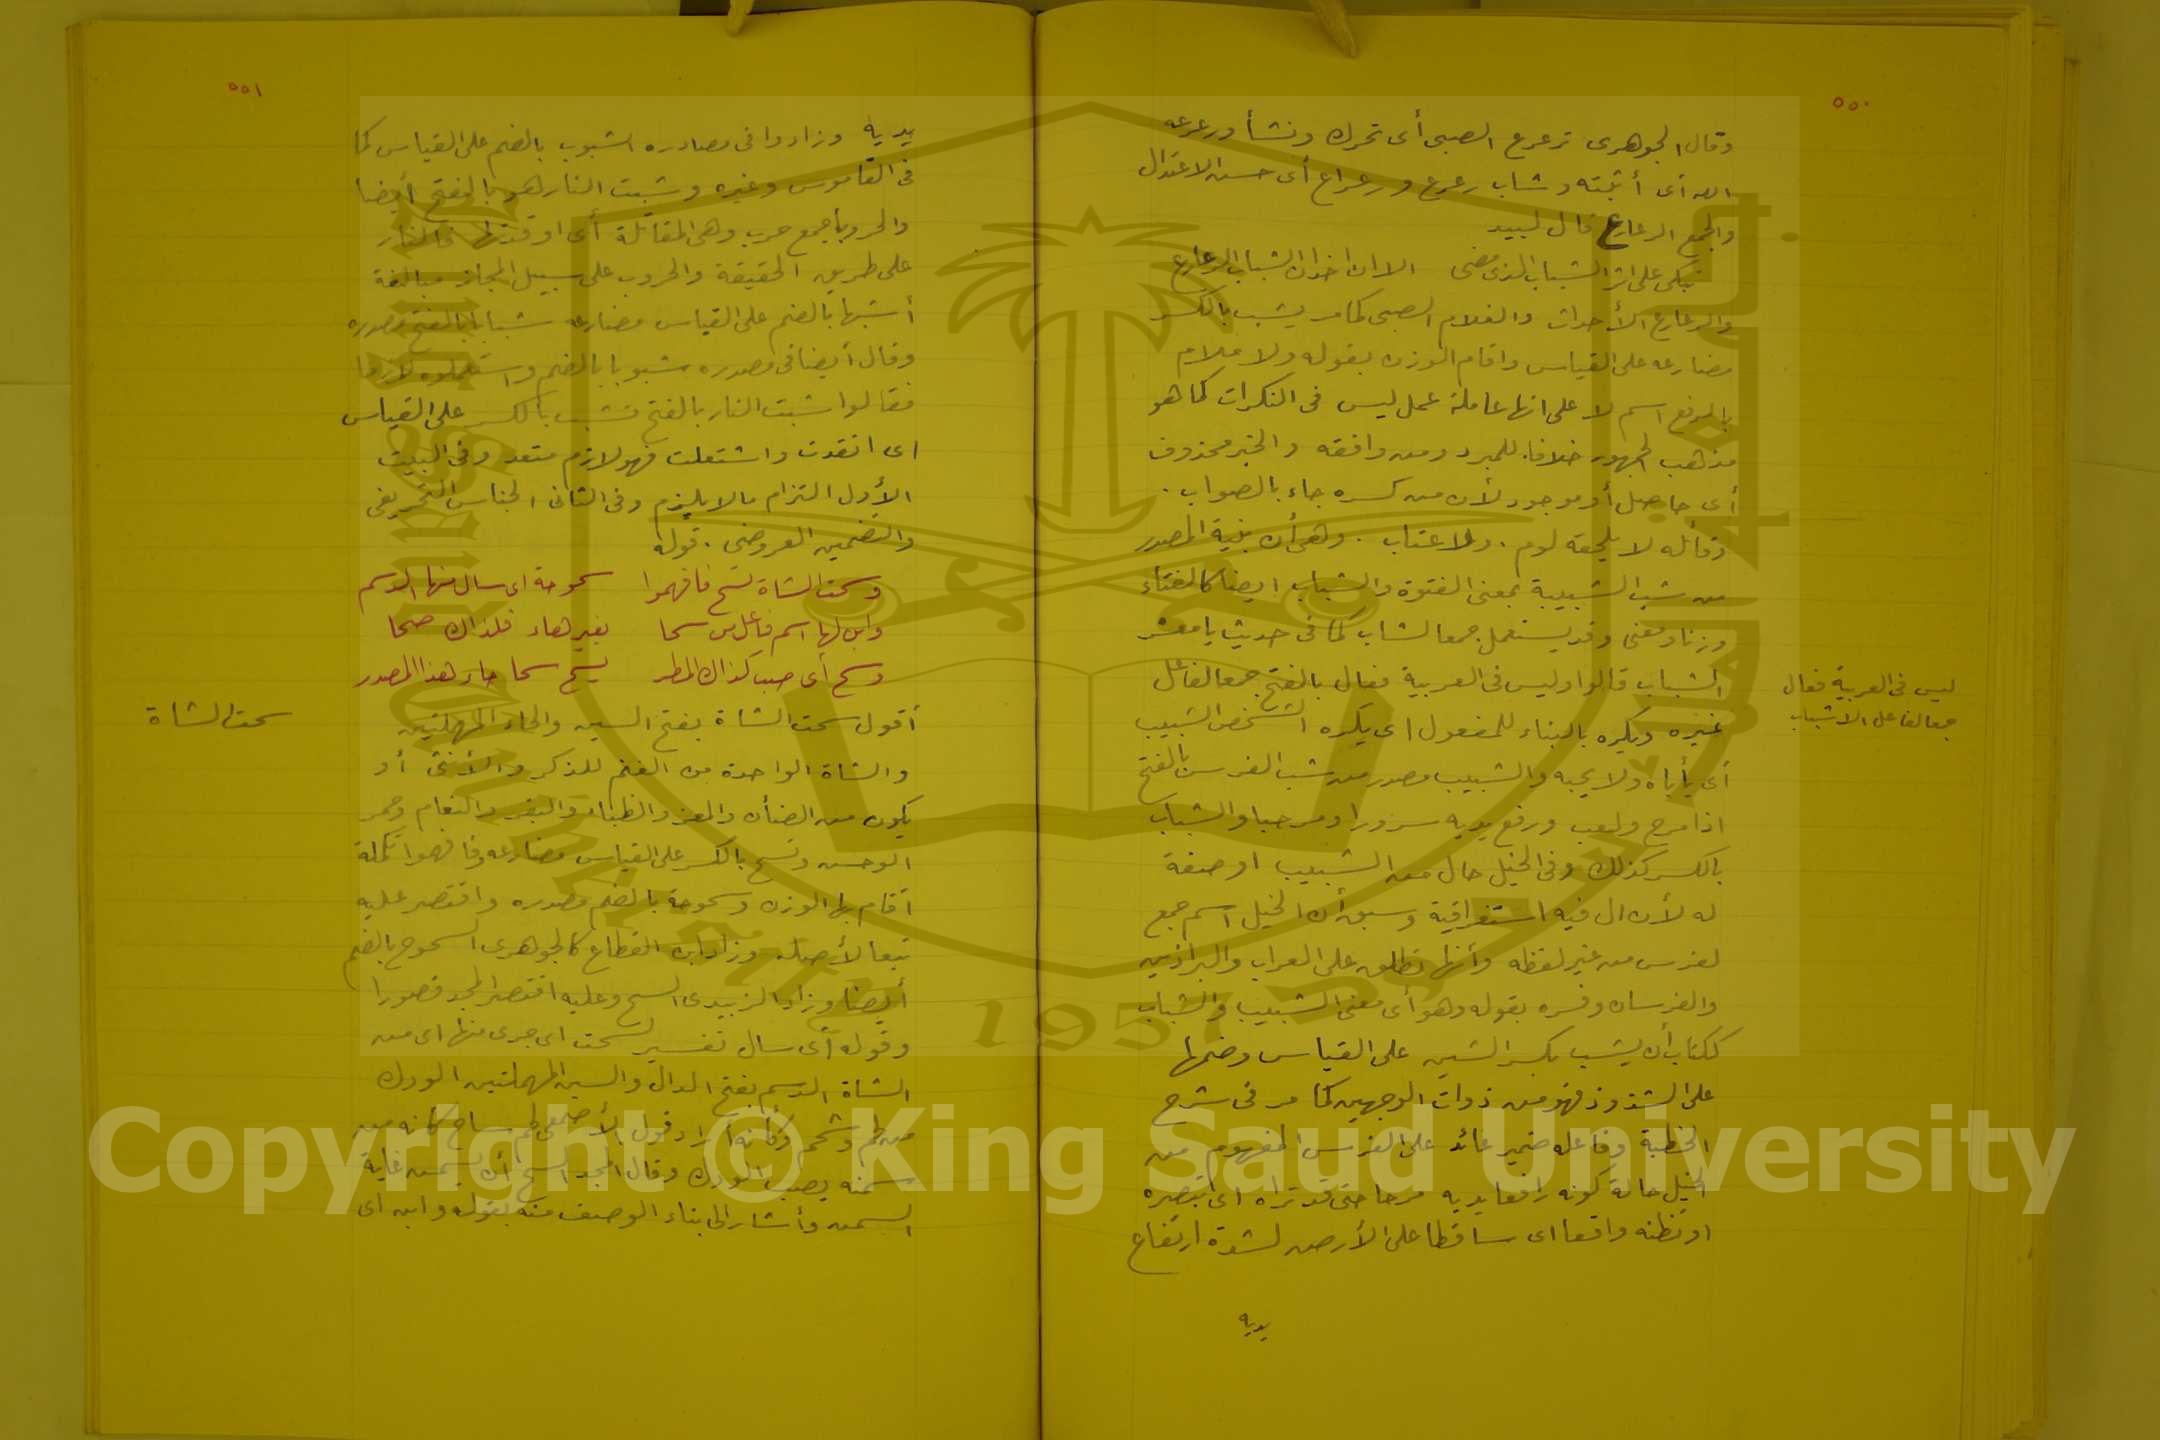 ٥٥٠
وقال الجوهرى ترعرع الصبى أى تحرك ونشأ ورعرعه
الله أى أنبته وشاب رعرع ورعراع أى حسن الاعتدال
والجمع الرعارع قال لبيد
تبكى على اثر الشباب الذى مضى الا ان اخدان الشباب الرعارع
والرعارع الأحداث والغلام الصبى كما مر يشب بالكسر
مضارعه على القياس واقام الوزن بقوله ولا ملام
بالرفع اسم لا على انها عاملة عمل ليس فى النكرات كما هو
مذهب الجمهور خلافا للمبرد ومن وافقه والخبر محذوف
أى حاصل أو موجود لأن من كسره جاء بالصواب .
وقائله لا يلحقه لوم . ولا عتاب . وهى أن بنية المصدر
من شب الشبيبة بمعنى الفتوة والشباب ايضا كالفتاء
وزنا ومعنى وقد يستعمل جمعا لشاب كما فى حديث يا معشر
الشباب قالوا وليس فى العربية فعال بالفتح جمعا لفاعل
غيره ويكره بالبناء للمفعول اى يكره الشخص الشبيب
أى يأباه ولا يحبه والشبيب مصدر من شب الفرس بالفتح
اذا مرح ولعب ورفع يديه سرورا ومرحا والشباب
بالكسر كذلك وفى الخيل حال من الشبيب او صفة
له لأن ال فيه استغراقية وسبق أن الخيل اسم جمع
لفرس من غير لفظه وأنها تطلق على العراب والبراذين
والفرسان وفسره بقوله وهو أى معنى الشبيب والشباب
ككتاب أن يشب بكسر الشين على القياس وضمها
على الشذوذ فهو من ذوات الوجهين كما مر فى شرح
الخطبة وفاعله ضمير عائد على الفرس المفهوم من
الخيل حالة كونه رافعا يديه مرحا حتى قد تراه اى تبصره
او تظنه واقعا اى ساقطا على الأرض لشدة ارتفاع
يديه
ليس فى العربية فعال
جمعا لفاعل الا شباب
٥٥١
يديه وزادوا فى مصادره الشبوب بالضم على القياس كما
فى القاموس وغيره وشبت النار هو بالفتح أيضا
والحروبا جمع حرب وهى المقاتلة أى اوقدتها فالنار
على طريق الحقيقة والحروب على سبيل المجاز مبالغة
أشبها بالضم على القياس مضارعه شبابا بالفتح مصدره
وقال أيضا فى مصدره شبوبا بالضم واستعملوه لازما
فقالوا شبت النار بالفتح تشب بالكسر على القياس
اى اتقدت واشتعلت فهو لازم متعد وفى البيت
الأول التزام ما لا يلزم وفى الثانى الجناس التحريفى
والتضمين العروضى . قوله
وسحت الشاة تسح فافهموا سحوحة اى سال منها الدسم
وابن لها اسم فاعل من سحا بغير هاء فلذاك صحا
وسح أى صب كذاك المطر يسح سحا جاء هذا المصدر
أقول سحت الشاة بفتح السين والحاء المهملتين
والشاة الواحدة من الغنم للذكر والأنثى أو
يكون من الضأن والمعز والظباء والبقر والنعام وحمر
الوحش وتسح بالكسر على القياس مضارعه وفافهموا تكملة
أقام بها الوزن وسحوحة بالضم مصدره واقتصر عليه
تبعا لأصله وزاد ابن القطاع كالجوهرى السحوح بالضم
أيضا وزاد الزبيدى السح وعليه اقتصر المجد قصورا
وقوله أى سال تفسير لسحت اى جرى منها اى من
الشاة الدسم بفتح الدال والسين المهملتين الودك
من لحم وشحم وكأنه اراد قول الأصمعى لحم ساح كانه من
سمنه يصب الودك وقال المجد السح أن يسمن غاية
السمن وأشار الى بناء الوصف منه بقوله وابن اى
سحت الشاة
King Saud University
1957
Copyright © King Saud University